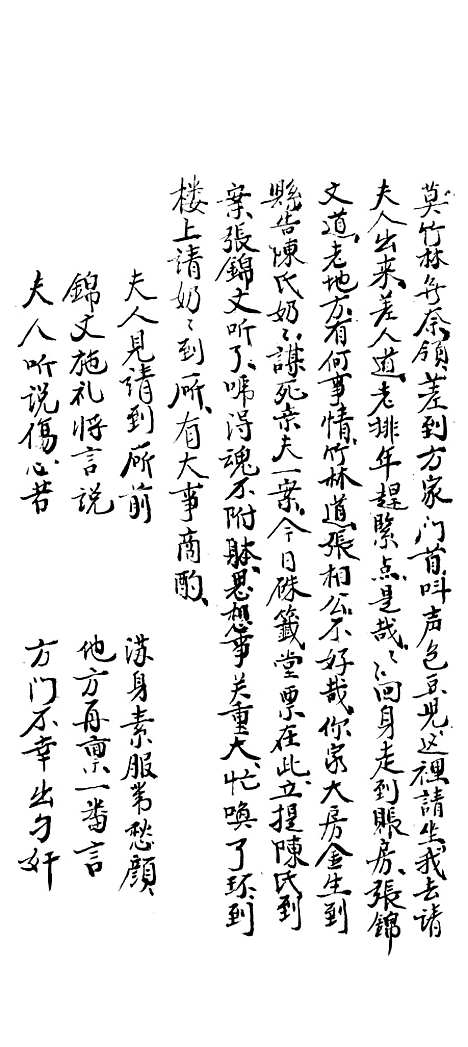 莫竹林無奈、領差到方家门首、叫声包头兄、这裡請坐、我去请
夫人出来、差人道、老排年趕緊点、是哉、〻、回身走到賬房、張錦
文道、老地方、有何事情、竹林道、張相公、不好哉、你家大房金生到
縣告陳氏奶〻、謀死亲夫一案、今日硃籤堂票在此、立提陳氏到
案、張錦文听了、嚇得魂不附躰、思想事关重大、忙喚了环、到
楼上请奶〻到廳、有大事商酌、
夫人見請到廳前　满身素服带愁顔
錦文施礼将言説　他方再禀一番言
夫人听说傷心昔　方门不幸出刁奸